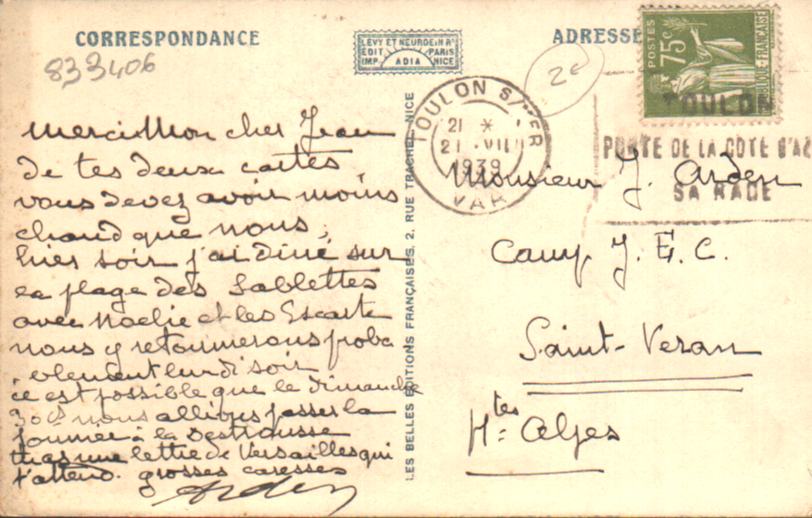 CORRESPONDANCE
833406
LEVY ET NEURDEIN Rs
EDIT. PARIS
IMP. ADIA NICE
ADRESSE
2e
POSTES
75c
RÉPUBLIQUE FRANÇAISE
TOULON S/MER
21 *
21 VII
1939
VAR
TOULON
PORTE DE LA COTE D'AZ
SA RADE
Merci Mon cher Jean
de tes deux cartes
vous devez avoir moins
chaud que nous,
hier soir j'ai diné sur
la plage des Sablettes
avec Noelie et les Escarte
nous y retournerons proba
blement lundi soir
il est possible que le dimanche
30 ct nous allions passer la
journée à la Destrousse
tu as une lettre de Versailles qui
t'attend. grosses caresses
Arden
LES BELLES EDITIONS FRANÇAISES, 2, RUE TRACHEL, NICE
Monsieur J. Arden
Camp J. E. C.
Saint-Veran
Htes Alpes